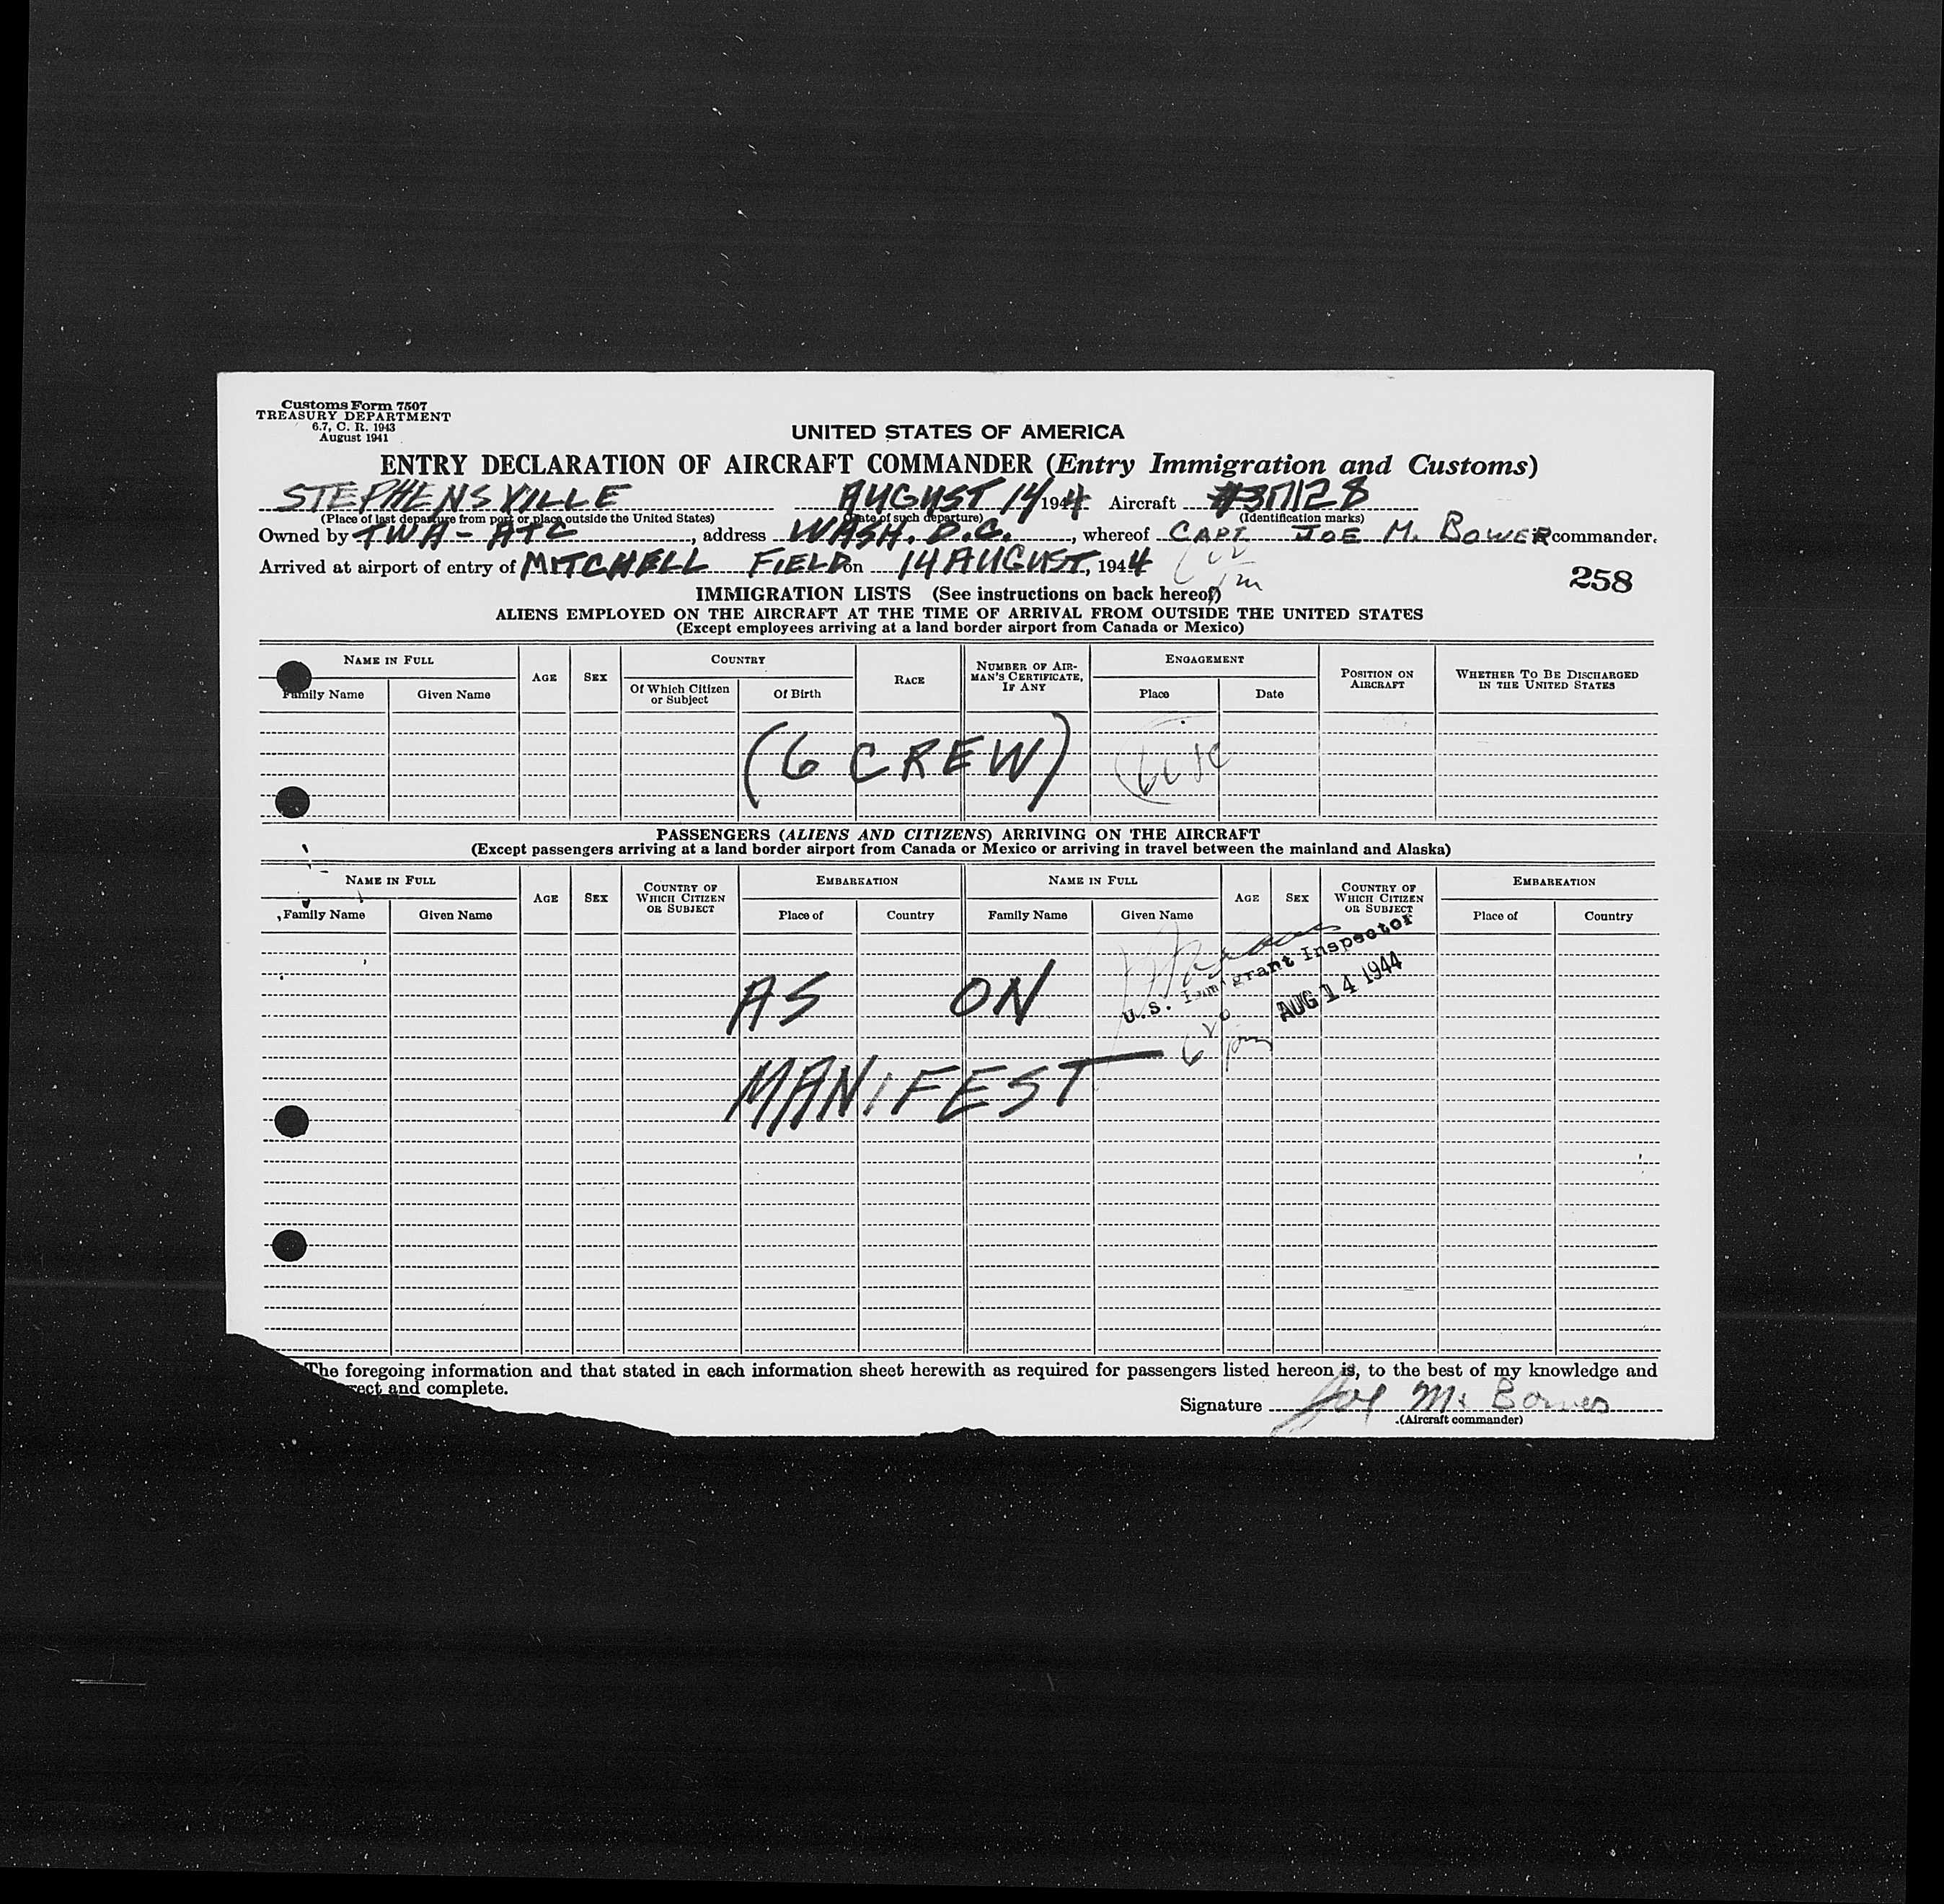 Customs Form 7507
TREASURY DEPARTMENT
6.7, C. R. 1943
August 1941
UNITED STATES OF AMERICA
ENTRY DECLARATION OF AIRCRAFT COMMANDER (Entry Immigration and Customs)
STEPHENSVILLE AUGUST 14 1944 Aircraft
(Place of last departure from port or place outside the United States) (Date of such departure) (Identification marks)
Owned by TWA - ATC, address WASH. D.C., whereof CAPT JOE M. BOWER commander.
Arrived at airport of entry of MITCHELL FIELD on 14 AUGUST, 1944
258
IMMIGRATION LISTS (See instructions on back hereof)
ALIENS EMPLOYED ON THE AIRCRAFT AT THE TIME OF ARRIVAL FROM OUTSIDE THE UNITED STATES
(Except employees arriving at a land border airport from Canada or Mexico)
NAME IN FULL AGE SEX COUNTRY RACE NUMBER OF AIRMAN'S CERTIFICATE, IF ANY ENGAGEMENT POSITION ON AIRCRAFT WHETHER TO BE DISCHARGED IN THE UNITED STATES
Family Name Given Name Of Which Citizen or Subject Of Birth Place Date
(6 CREW)
PASSENGERS (ALIENS AND CITIZENS) ARRIVING ON THE AIRCRAFT
(Except passengers arriving at a land border airport from Canada or Mexico or arriving in travel between the mainland and Alaska)
NAME IN FULL AGE SEX COUNTRY OF WHICH CITIZEN OR SUBJECT EMBARKATION NAME IN FULL AGE SEX COUNTRY OF WHICH CITIZEN OR SUBJECT EMBARKATION
Family Name Given Name Place of Country Family Name Given Name Place of Country
U.S. Immigrant Inspector
AUG 14 1944
AS ON
MANIFEST
The foregoing information and that stated in each information sheet herewith as required for passengers listed hereon is, to the best of my knowledge and
rect and complete.
Signature Joe M. Bower
(Aircraft commander)